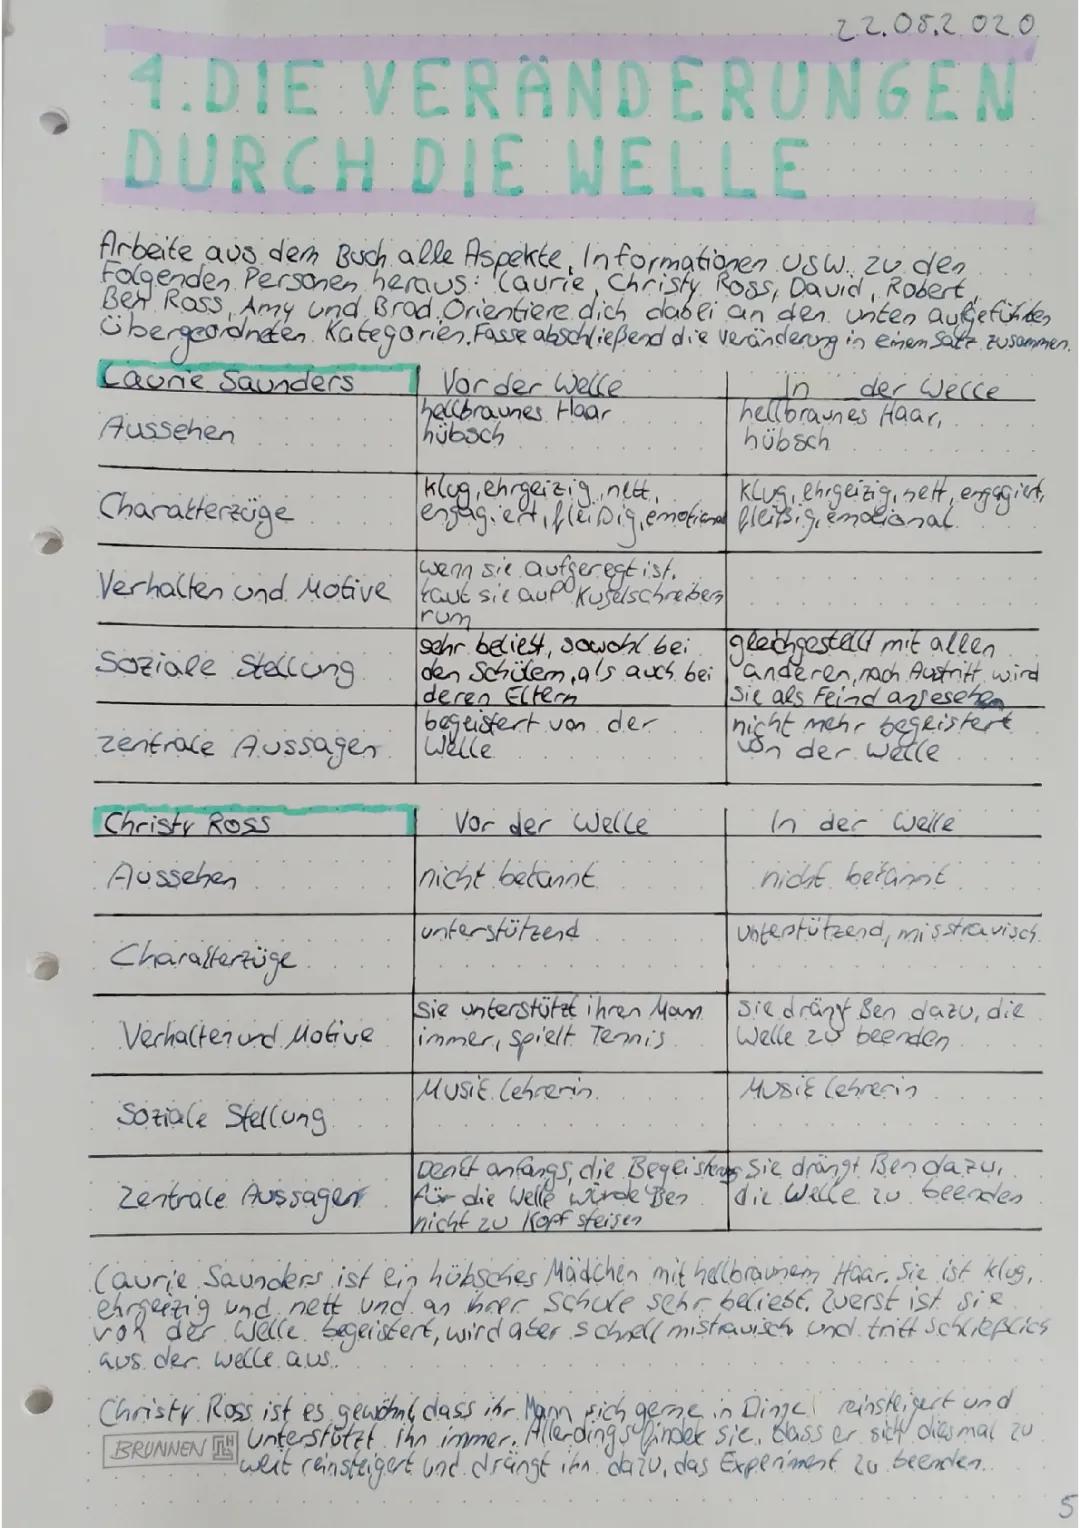 22.05.2020
4. DIE VERÄNDERUNGEN
DURCH DIE WELLE
Arbeite aus dem Buch alle Aspekte, Informationen usw. zu den
Folgenden Personen heraus: Laurie, Christy Ross, David, Robert,
Ben Ross, Amy und Brad. Orientiere dich dabei an den unten aufgeführten
übergeordneten Kategorien. Fasse abschließend die Veränderung in einem Satz zusammen.
Laurie Saunders Vor der Welle In der Welle
Aussehen
hellbraunes Haar
hübsch
hellbraunes Haar,
hübsch
Charakterzüge
klug, ehrgeizig, nett,
engagiert, fleißig, emotional
klug, ehrgeizig, nett, engagiert,
fleißig, emotional
Verhalten und Motive
wenn sie aufgeregt ist,
kaut sie auf Kugelschreibern
rum
Soziale Stellung
sehr beliebt, sowohl bei
den Schülern, als auch bei
deren Eltern
gleichgestellt mit allen
anderen, nach Austritt wird
sie als Feind angesehen
zentrale Aussagen
begeistert von der
Welle
nicht mehr begeistert
von der Welle
Christy Ross Vor der Welle In der Welle
Aussehen nicht bekannt nicht bekannt
Charakterzüge
unterstützend
unterstützend, misstrauisch
Verhalten und Motive
Sie unterstützt ihren Mann
immer, spielt Tennis
Sie drängt Ben dazu, die
Welle zu beenden
Soziale Stellung
Musik Lehrerin
Musik Lehrerin
Zentrale Aussagen
Denkt anfangs, die Begeisterung
für die Welle würde Ben
nicht zu Kopf steigen
Sie drängt Ben dazu,
die Welle zu beenden
Laurie Saunders ist ein hübsches Mädchen mit hellbraunem Haar. Sie ist klug,
ehrgeizig und nett und an ihrer Schule sehr beliebt. Zuerst ist sie
von der Welle begeistert, wird aber schnell mistrauisch und tritt schließlich
aus der Welle aus.
Christy Ross ist es gewöhnt, dass ihr Mann sich gerne in Dinge reinsteigert und
unterstützt ihn immer. Allerdings findet sie, dass er sich diesmal zu
weit reinsteigert und drängt ihn dazu, das Experiment zu beenden.
BRUNNEN
5